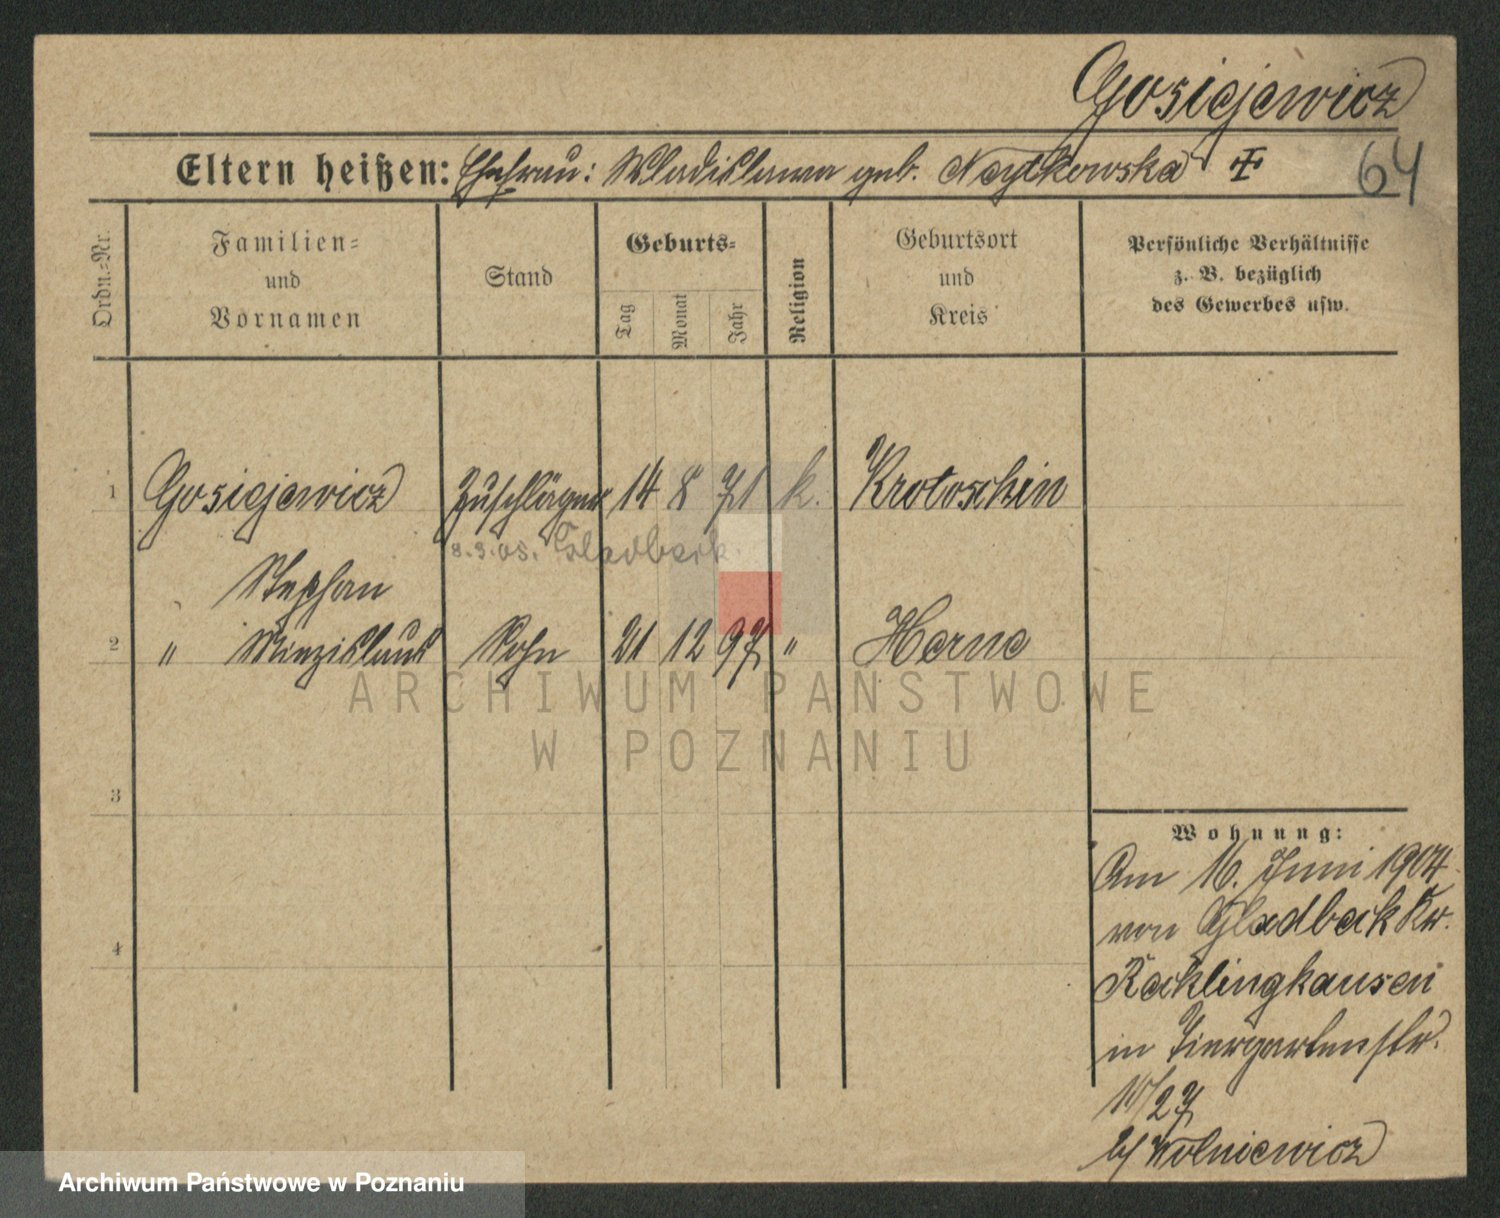 Gosiejewicz
Eltern heißen: Ehefrau: Wladislawa geb. Noytkowska
64
Ordn.-Nr.
Familien-
und
Vornamen
Stand
Geburts-
Tag
Monat
Jahr
Religion
Geburtsort
und
Kreis
Persönliche Verhältnisse
z. B. bezüglich
des Gewerbes usw.
1 Gosiejewicz Zuschläger 14 8 71 k. Krotoschin
8.3.05. Gladbeck.
Stephan
2 " Miezislaus Sohn 21 12 97 " Herne
3
4
Wohnung:
Am 16. Juni 1904
von Gladbeck Kr.
Recklinghausen
in Tiergartenstr.
10/27
b/ Wolniewicz
ARCHIWUM PAŃSTWOWE
W POZNANIU
Archiwum Państwowe w Poznaniu